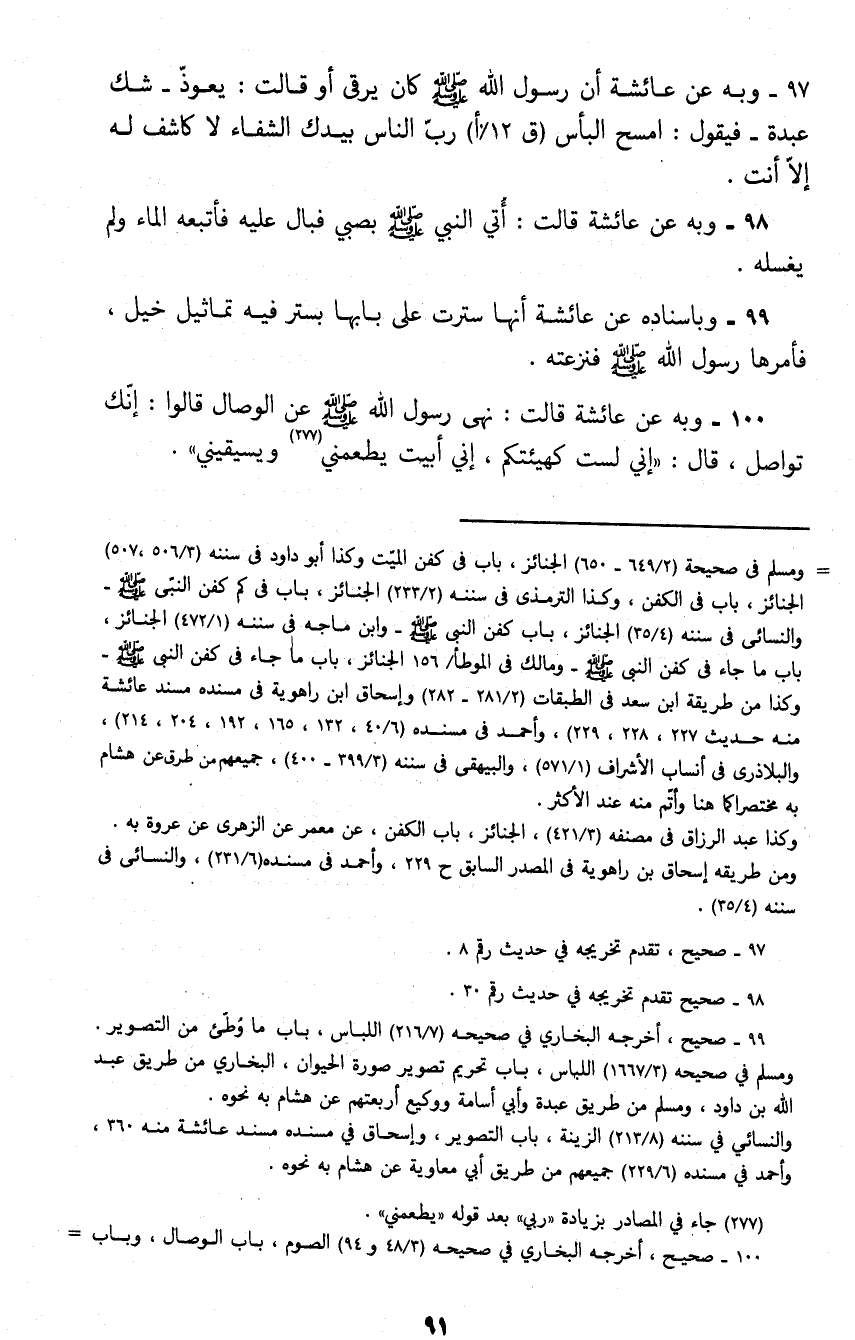 ٩٧ ـ وبه عن عائشة أن رسول الله ﷺ كان يرقى أو قالت : يعوذّ ـ شك
عبدة ـ فيقول : امسح البأس (ق ١٢/أ) ربّ الناس بيدك الشفاء لا كاشف له
إلاّ أنت .
٩٨ ـ وبه عن عائشة قالت : أُتي النبي ﷺ بصبي فبال عليه فأتبعه الماء ولم
يغسله .
٩٩ ـ وباسناده عن عائشة أنها سترت على بابها بستر فيه تماثيل خيل ،
فأمرها رسول الله ﷺ فنزعته .
١٠٠ ـ وبه عن عائشة قالت : نهى رسول الله ﷺ عن الوصال قالوا : إنّك
تواصل ، قال : «إني لست كهيئتكم ، إني أبيت يطعمني(٢٧٧) ويسيقيني» .
= ومسلم فى صحيحة (٦٤٩/٢ ـ ٦٥٠) الجنائز ، باب فى كفن الميّت وكذا أبو داود فى سننه (٥٠٦/٣ ،٥٠٧)
الجنائز ، باب فى الكفن ، وكذا الترمذى فى سننه (٢٣٣/٢) الجنائز ، باب فى كم كفن النبّى ﷺ ـ
والنسائى فى سننه (٣٥/٤) الجنائز ، باب كفن النبي ﷺ ـ وابن ماجه فى سننه (٤٧٢/١) الجنائز ،
باب ما جاء فى كفن النبى ﷺ ـ ومالك فى الموطأ/ ١٥٦ الجنائز ، باب ما جاء فى كفن النبي ﷺ ـ
وكذا من طريقة ابن سعد فى الطبقات (٢٨١/٢ ـ ٢٨٢) وإسحاق ابن راهوية فى مسنده مسند عائشة
منه حديث ٢٢٧ ، ٢٢٨ ، ٢٢٩) ، وأحمد فى مسنده (٤٠/٦ ، ١٣٢ ، ١٦٥ ، ١٩٢ ، ٢٠٤ ، ٢١٤) ،
والبلاذرى فى أنساب الأشراف (٥٧١/١) ، والبيهقى فى سننه (٣٩٩/٣ ـ ٤٠٠) ، جميعهم من طرق عن هشام
به مختصراكما هنا وأتّم منه عند الأكثر .
وكذا عبد الرزاق فى مصنفه (٤٢١/٣) ، الجنائز ، باب الكفن ، عن معمر عن الزهرى عن عروة به .
ومن طريقه إسحاق بن راهوية فى المصدر السابق ح ٢٢٩ ، وأحمد فى مسنده(٢٣١/٦) ، والنسائى فى
سننه (٣٥/٤) .
٩٧ ـ صحيح ، تقدم تخريجه في حديث رقم ٨ .
٩٨ ـ صحيح تقدم تخريجه في حديث رقم ٣٠ .
٩٩ ـ صحيح ، أخرجه البخاري في صحيحه (٢١٦/٧) اللباس ، باب ما وُطّئ من التصوير .
ومسلم في صحيحه (١٦٦٧/٣) اللباس ، باب تحريم تصوير صورة الحيوان ، البخاري من طريق عبد
الله بن داود ، ومسلم من طريق عبدة وأبي أسامة ووكيع أربعتهم عن هشام به نحوه .
والنسائي في سننه (٢١٣/٨) الزينة ، باب التصوير ، وإسحاق في مسنده مسند عائشة منه ٣٦٠ ،
وأحمد في مسنده (٢٢٩/٦) جميعهم من طريق أبي معاوية عن هشام به نحوه .
(٢٧٧) جاء في المصادر بزيادة «ربي» بعد قوله «يطعمني» .
١٠٠ ـ صحيح ، أخرجه البخاري في صحيحه (٤٨/٣ و ٩٤) الصوم ، باب الوصال ، وباب =
٩١